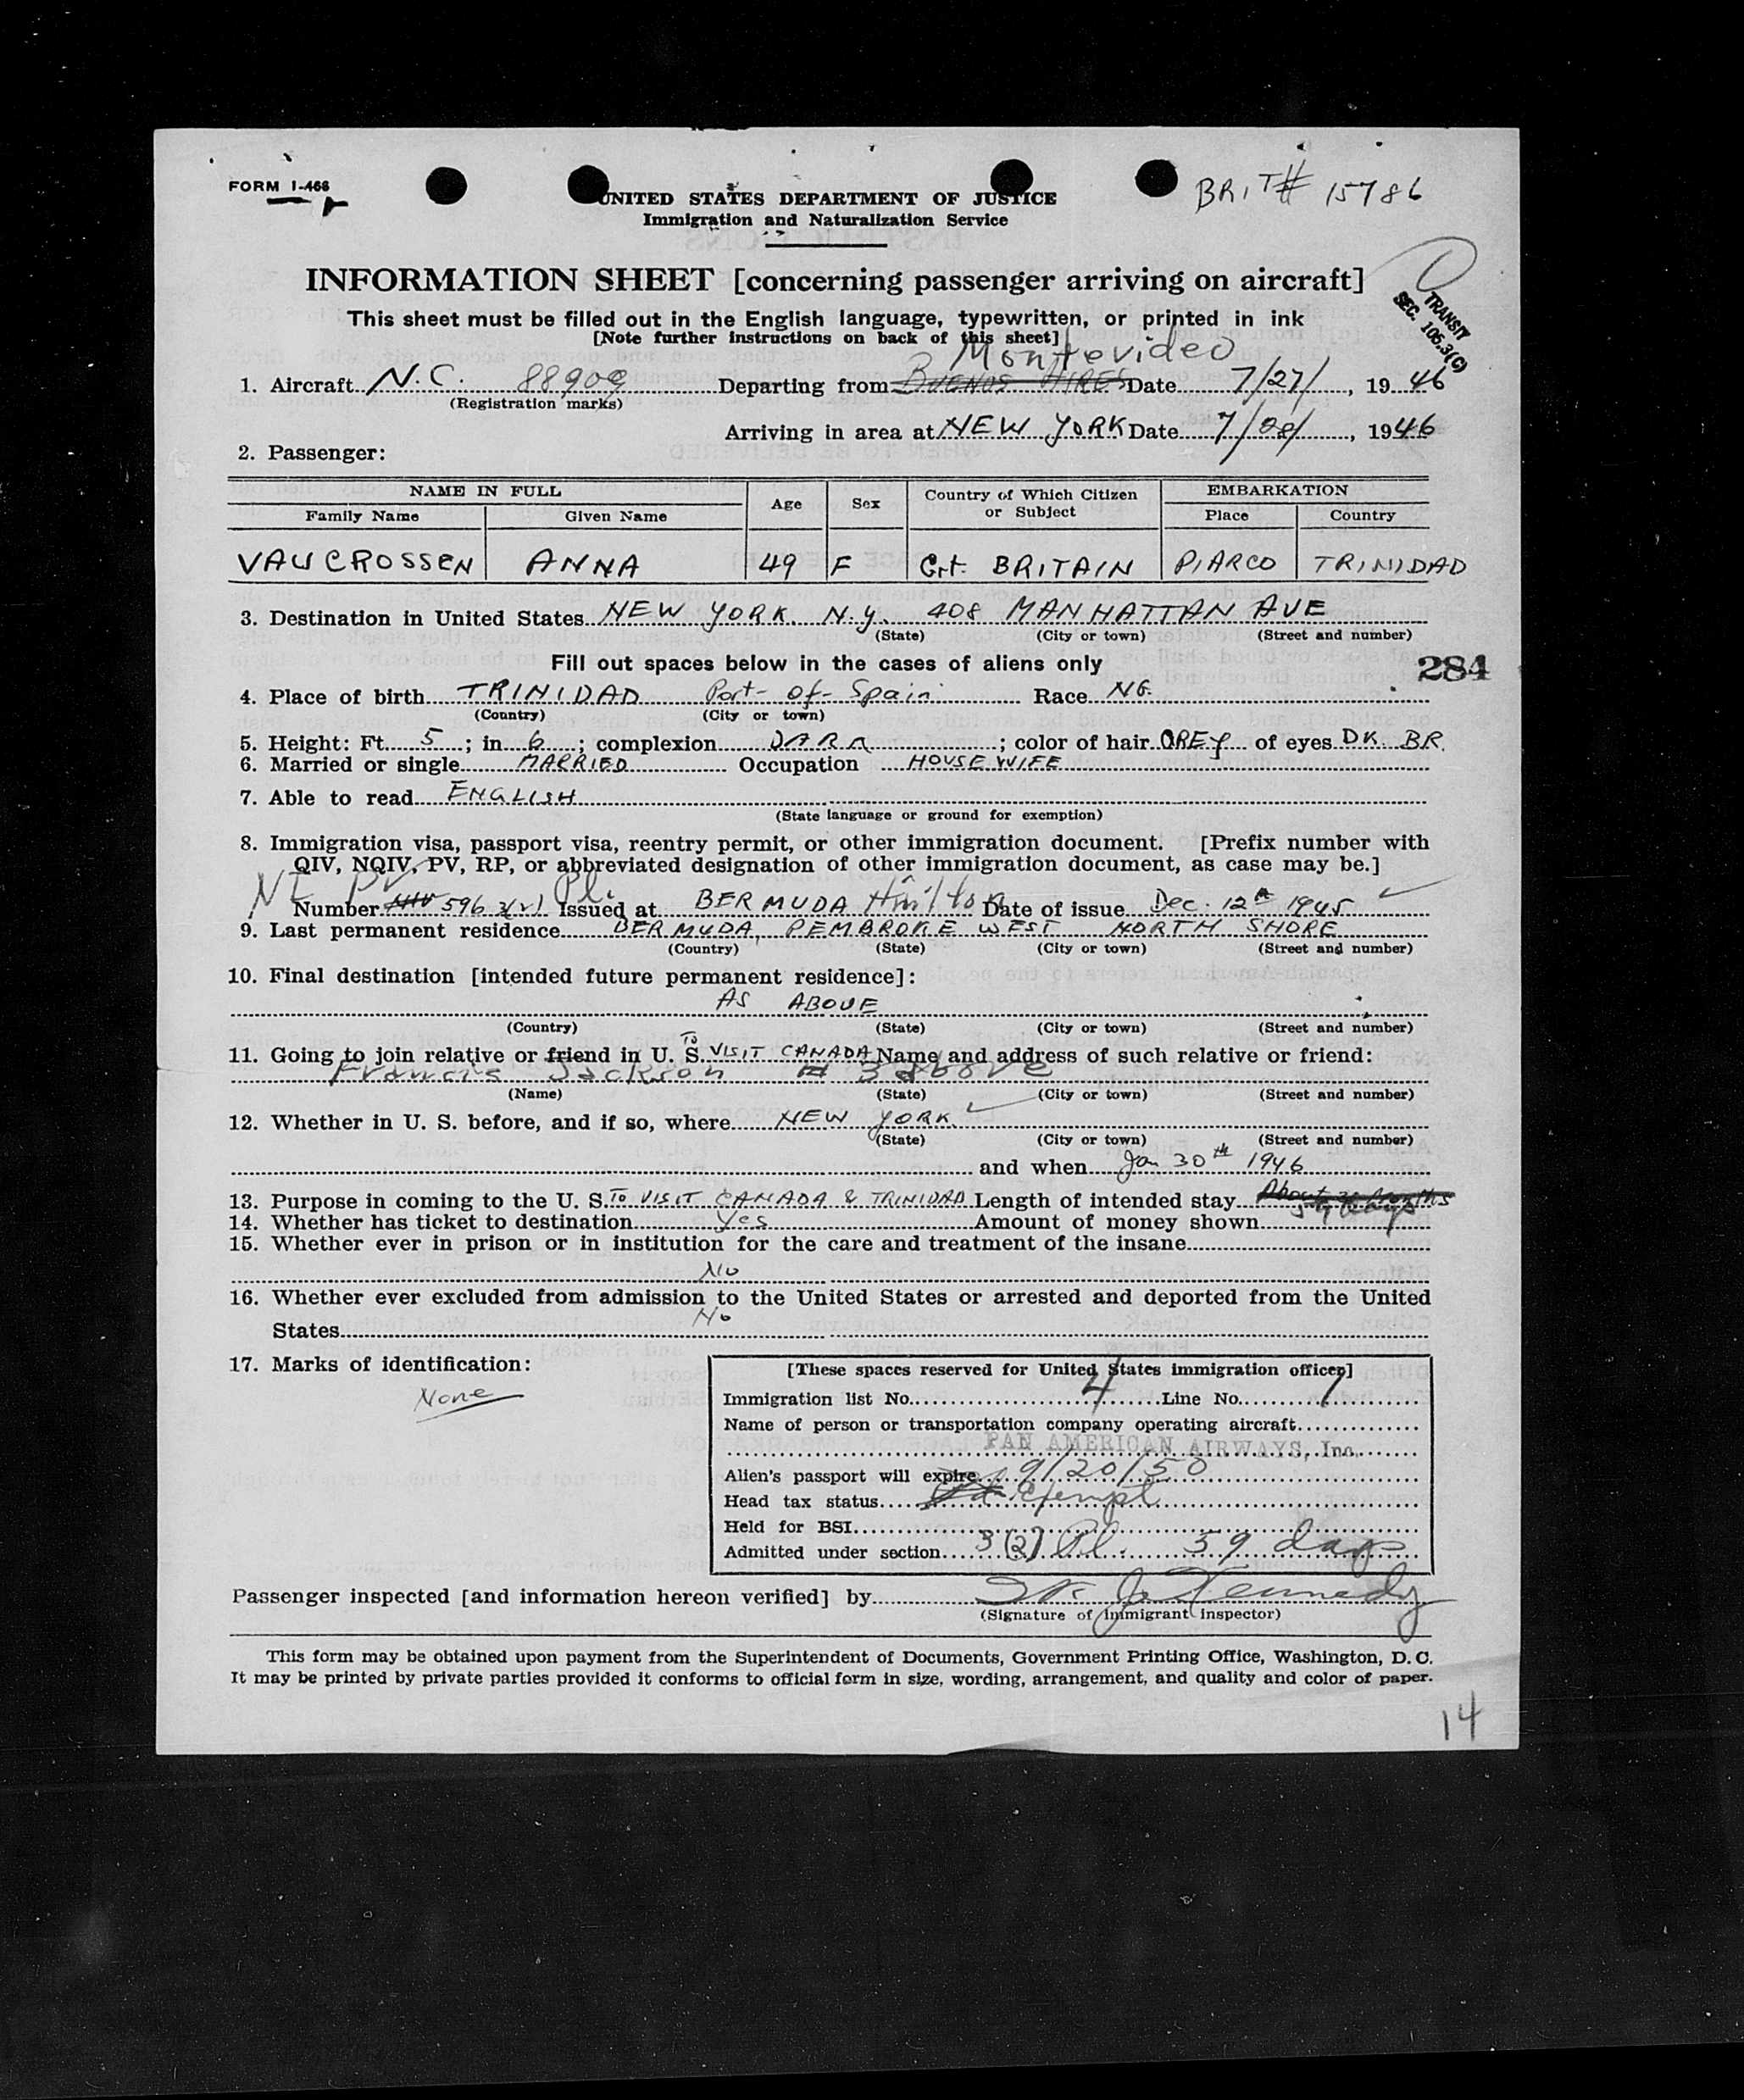 FORM I-466
UNITED STATES DEPARTMENT OF JUSTICE
Immigration and Naturalization Service
BRIT# 15786
INFORMATION SHEET [concerning passenger arriving on aircraft]
TRANSIT
SEC. 106.3(C)
This sheet must be filled out in the English language, typewritten, or printed in ink
[Note further instructions on back of this sheet]
Montevideo
1. Aircraft N.C. 88909 Departing from BUENOS AIRES Date 7/27/, 1946
(Registration marks)
Arriving in area at NEW YORK Date 7/28/, 1946
2. Passenger:
NAME IN FULL Age Sex Country of Which Citizen or Subject EMBARKATION
Family Name Given Name Place Country
VAUCROSSEN ANNA 49 F Grt. BRITAIN PIARCO TRINIDAD
3. Destination in United States NEW YORK. N.Y. 408 MANHATTAN AVE
(State) (City or town) (Street and number)
Fill out spaces below in the cases of aliens only
284
4. Place of birth TRINIDAD Port-of-Spain Race NG.
(Country) (City or town)
5. Height: Ft. 5; in 6; complexion DARK; color of hair GREY of eyes DK. BR.
6. Married or single MARRIED Occupation HOUSEWIFE
7. Able to read ENGLISH
(State language or ground for exemption)
8. Immigration visa, passport visa, reentry permit, or other immigration document. [Prefix number with
QIV, NQIV, PV, RP, or abbreviated designation of other immigration document, as case may be.]
NI PV Pl.
Number 596 3(2) Issued at BERMUDA Hamilton Date of issue Dec. 12th 1945
9. Last permanent residence BERMUDA, PEMBROKE WEST NORTH SHORE
(Country) (State) (City or town) (Street and number)
10. Final destination [intended future permanent residence]:
AS ABOVE
(Country) (State) (City or town) (Street and number)
11. Going to join relative or friend in U. S. TO VISIT CANADA Name and address of such relative or friend:
Francis Jackson # 3 above
(Name) (State) (City or town) (Street and number)
12. Whether in U. S. before, and if so, where NEW YORK.
(State) (City or town) (Street and number)
and when Jan 30th 1946
13. Purpose in coming to the U. S. TO VISIT CANADA & TRINIDAD Length of intended stay About months
days
14. Whether has ticket to destination Yes Amount of money shown
15. Whether ever in prison or in institution for the care and treatment of the insane
No
16. Whether ever excluded from admission to the United States or arrested and deported from the United
States No
17. Marks of identification:
None
[These spaces reserved for United States immigration officer]
Immigration list No. 4 Line No. 1
Name of person or transportation company operating aircraft
PAN AMERICAN AIRWAYS, Inc.
Alien's passport will expire 9/20/50
Head tax status Exempt
Held for BSI
Admitted under section 3(2) Pl. 59 days
Passenger inspected [and information hereon verified] by Wm J. Kennedy
(Signature of immigrant inspector)
This form may be obtained upon payment from the Superintendent of Documents, Government Printing Office, Washington, D. C.
It may be printed by private parties provided it conforms to official form in size, wording, arrangement, and quality and color of paper.
14